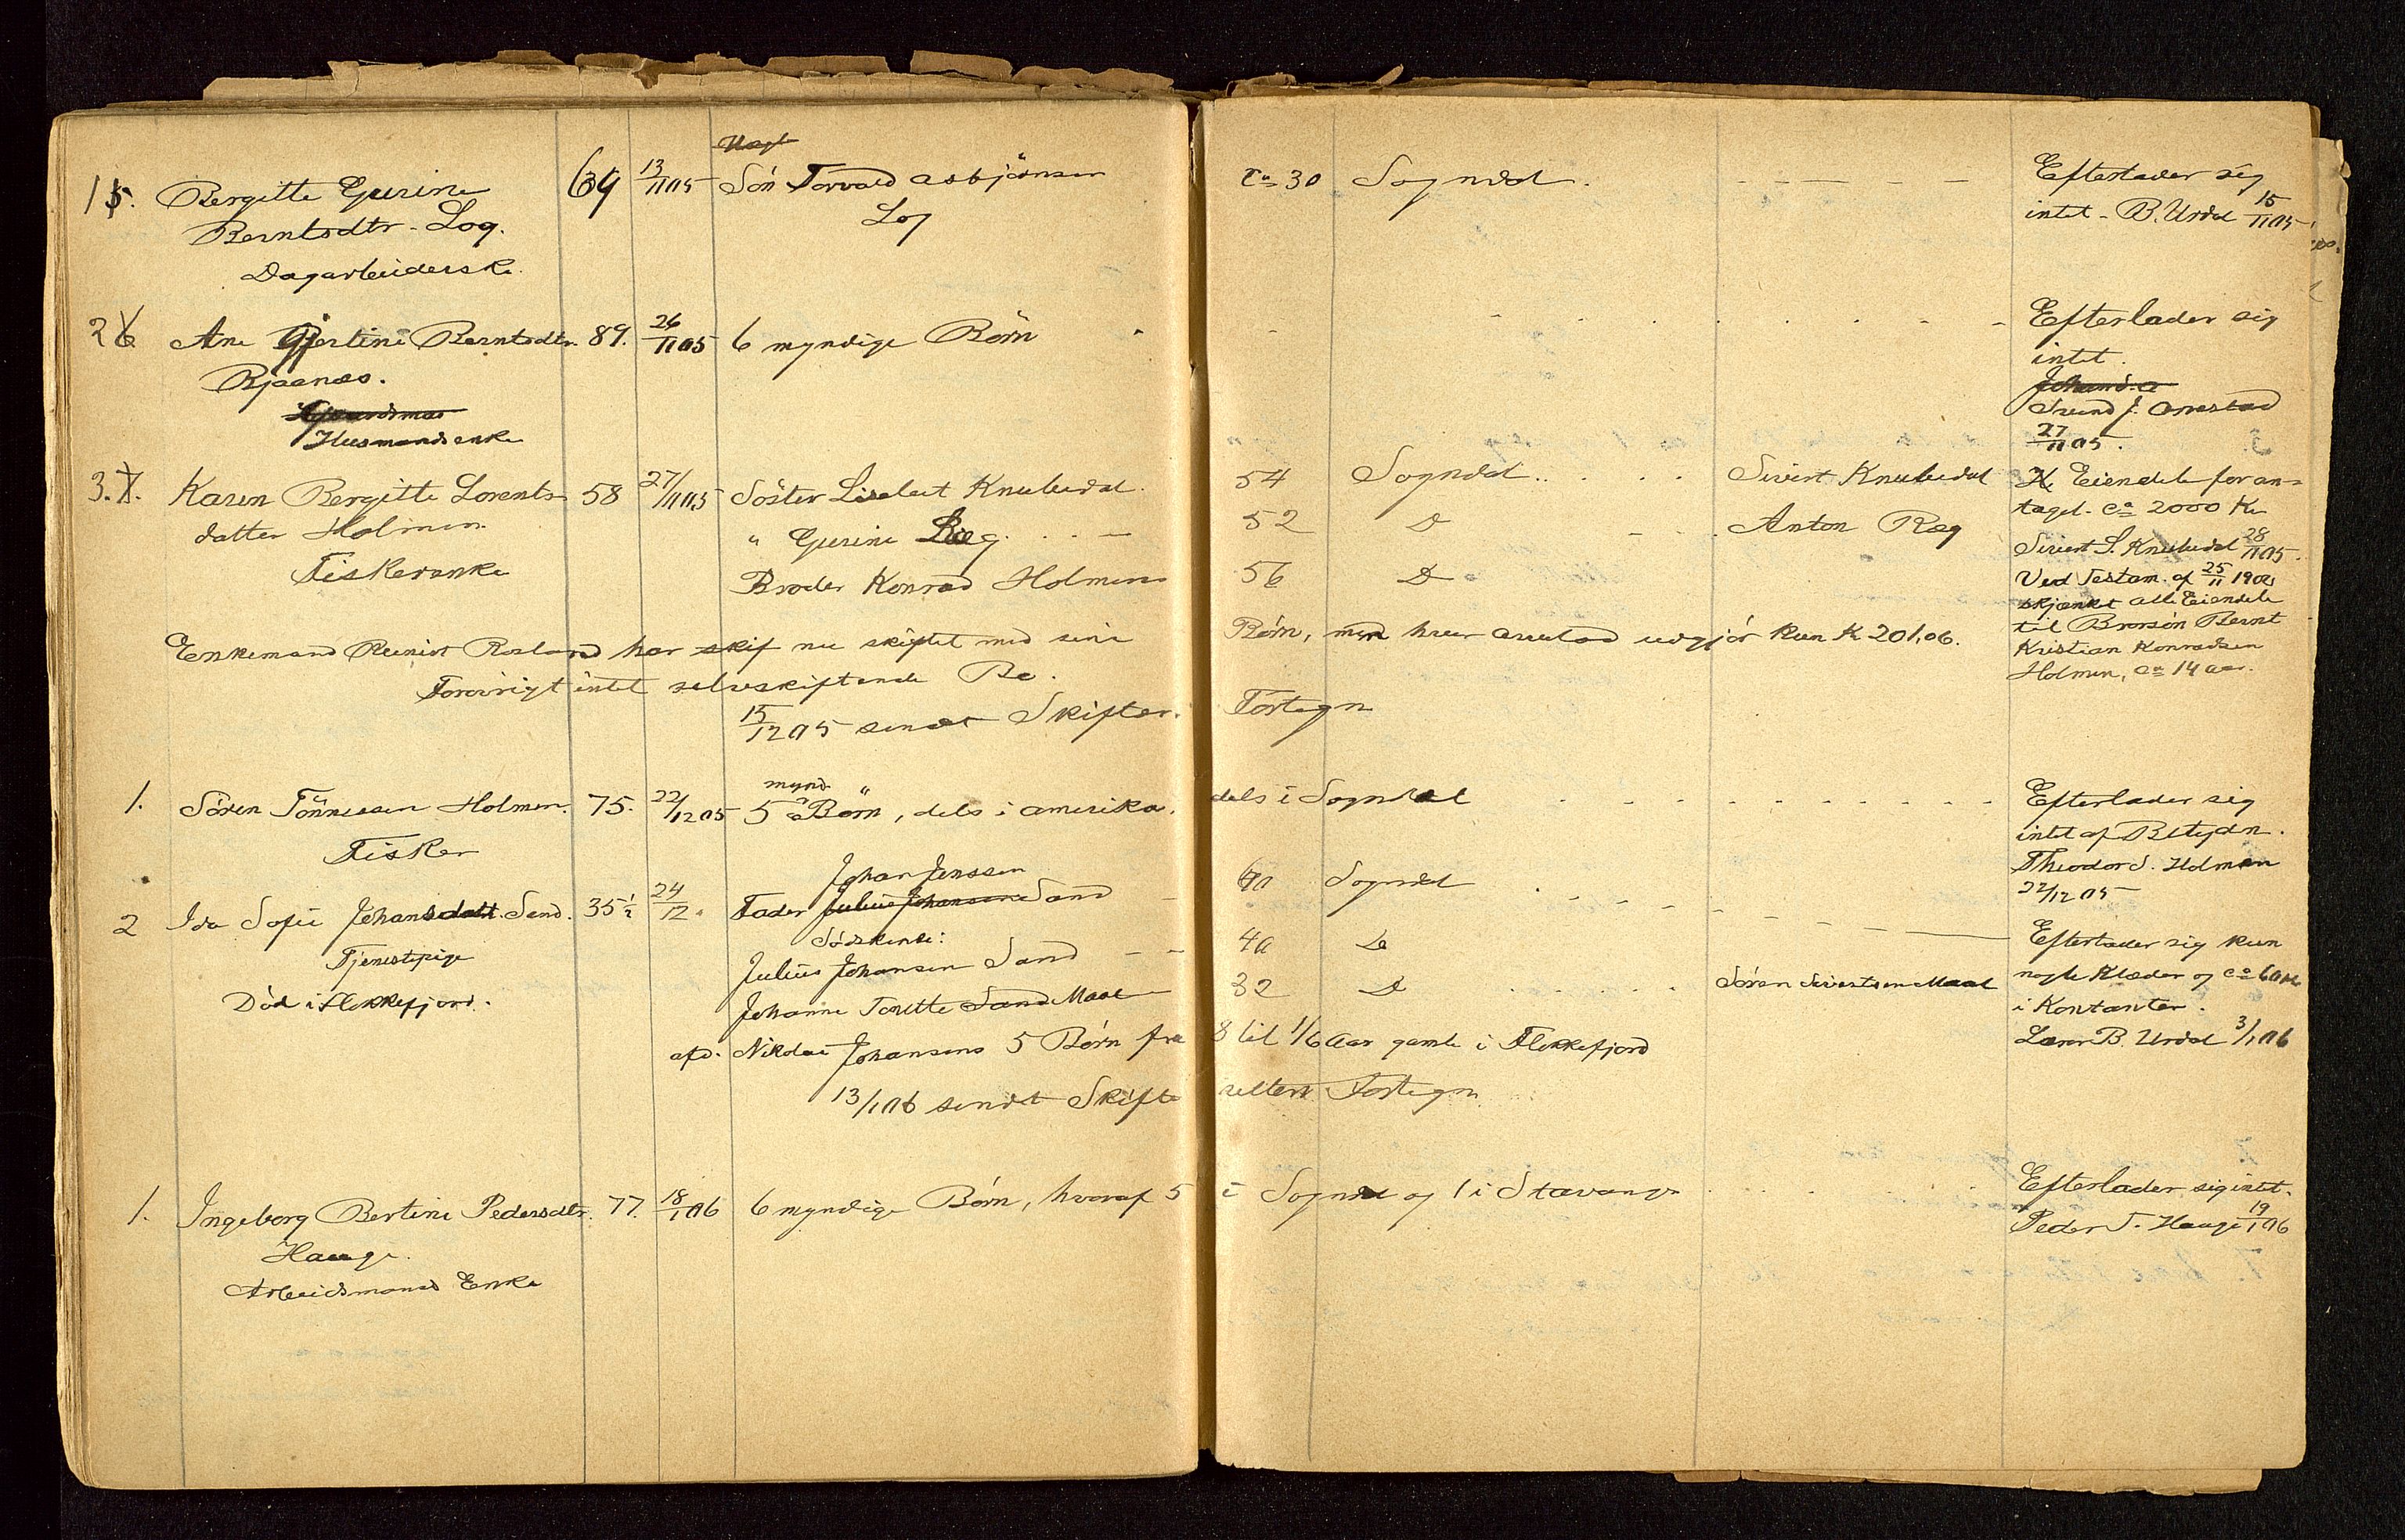 15. Bergitte Gurine 69 13/11 05 Sön Torvald Asbjörnsen ca 30 Sogndal. Efterlader sig
Berntsdtr. Log. Log intet - B. Urdal 15/11 05
Dagarbeiderske.
2 Ane Gjertine Berntsdtr. 89. 26/11 05 6 myndige Börn Efterlader sig
Rjaanes. intet.
Husmandsenke Svend J. Årrestad
27/11 05.
3. Karen Bergitte Lorents- 58 27/11 05 Söster Liselut Knubedal. 54 Sogndal Sivert Knubedal Eiendele foran=
datter Holmen " Gurine Ræg. 52 Do Anton Ræg taget. ca 2000 Kr
Fiskerenke Broder Konrad Holmen 56 Do Sivert S. Knubedal 28/11 05.
Ved Testam. af 25/11 1902
skjænket alle Eiendele
til Brorsön Bernt
Kristian Konradsen
Holmen, ca 14 aar.
Enkemand Reinert Rosland har skif nu skiftet med sine Börn, men hver arvelod udgjör kun K 201,06.
Forövrigt intet selvskiftende Bo.
15/12 05 sendt Skifter. Fortegn
1. Sören Tönnessen Holmen. 75. 22/12 05 5 mynd. Börn, dels i Amerika, dels i Sogndal Efterlader sig
Fisker intet af Betydn.
Theodor S. Holmen
22/12 05
2 Ida Sofie Johansdatt. Sand. 35½ 24/12. Fader Johan Jenssen Sand Sogndal
Tjenestepige Södskende: Efterlader sig kun
Julius Johansen Sand 40 Do nogle Klæder og ca 60 Kr
Död i Flekkefjord. Johanne Tonette Sand Maal 32 Do Sören Sivertsen Maal i Kontanter.
afd. Nikolai Johansens 5 Börn fra 8 til 1/6 Aar gamle i Flekkefjord Lærer B. Urdal 3/1 06
13/1 06 sendt Skifte rettens Fortegn
1. Ingeborg Bertine Pedersdtr. 77. 18/1 06 6 myndige Börn, hvoraf 5 i Sogndal og 1 i Stavanger Efterlader sig intet.
Hauge. Peder T. Hauge 19/1 06
Arbeidsmands Enke